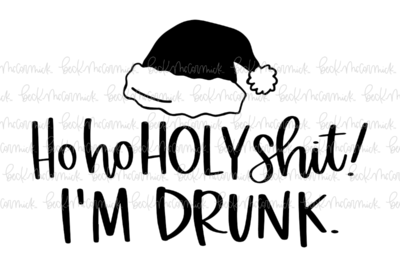 Ho ho HOLY shit!
I'M DRUNK.